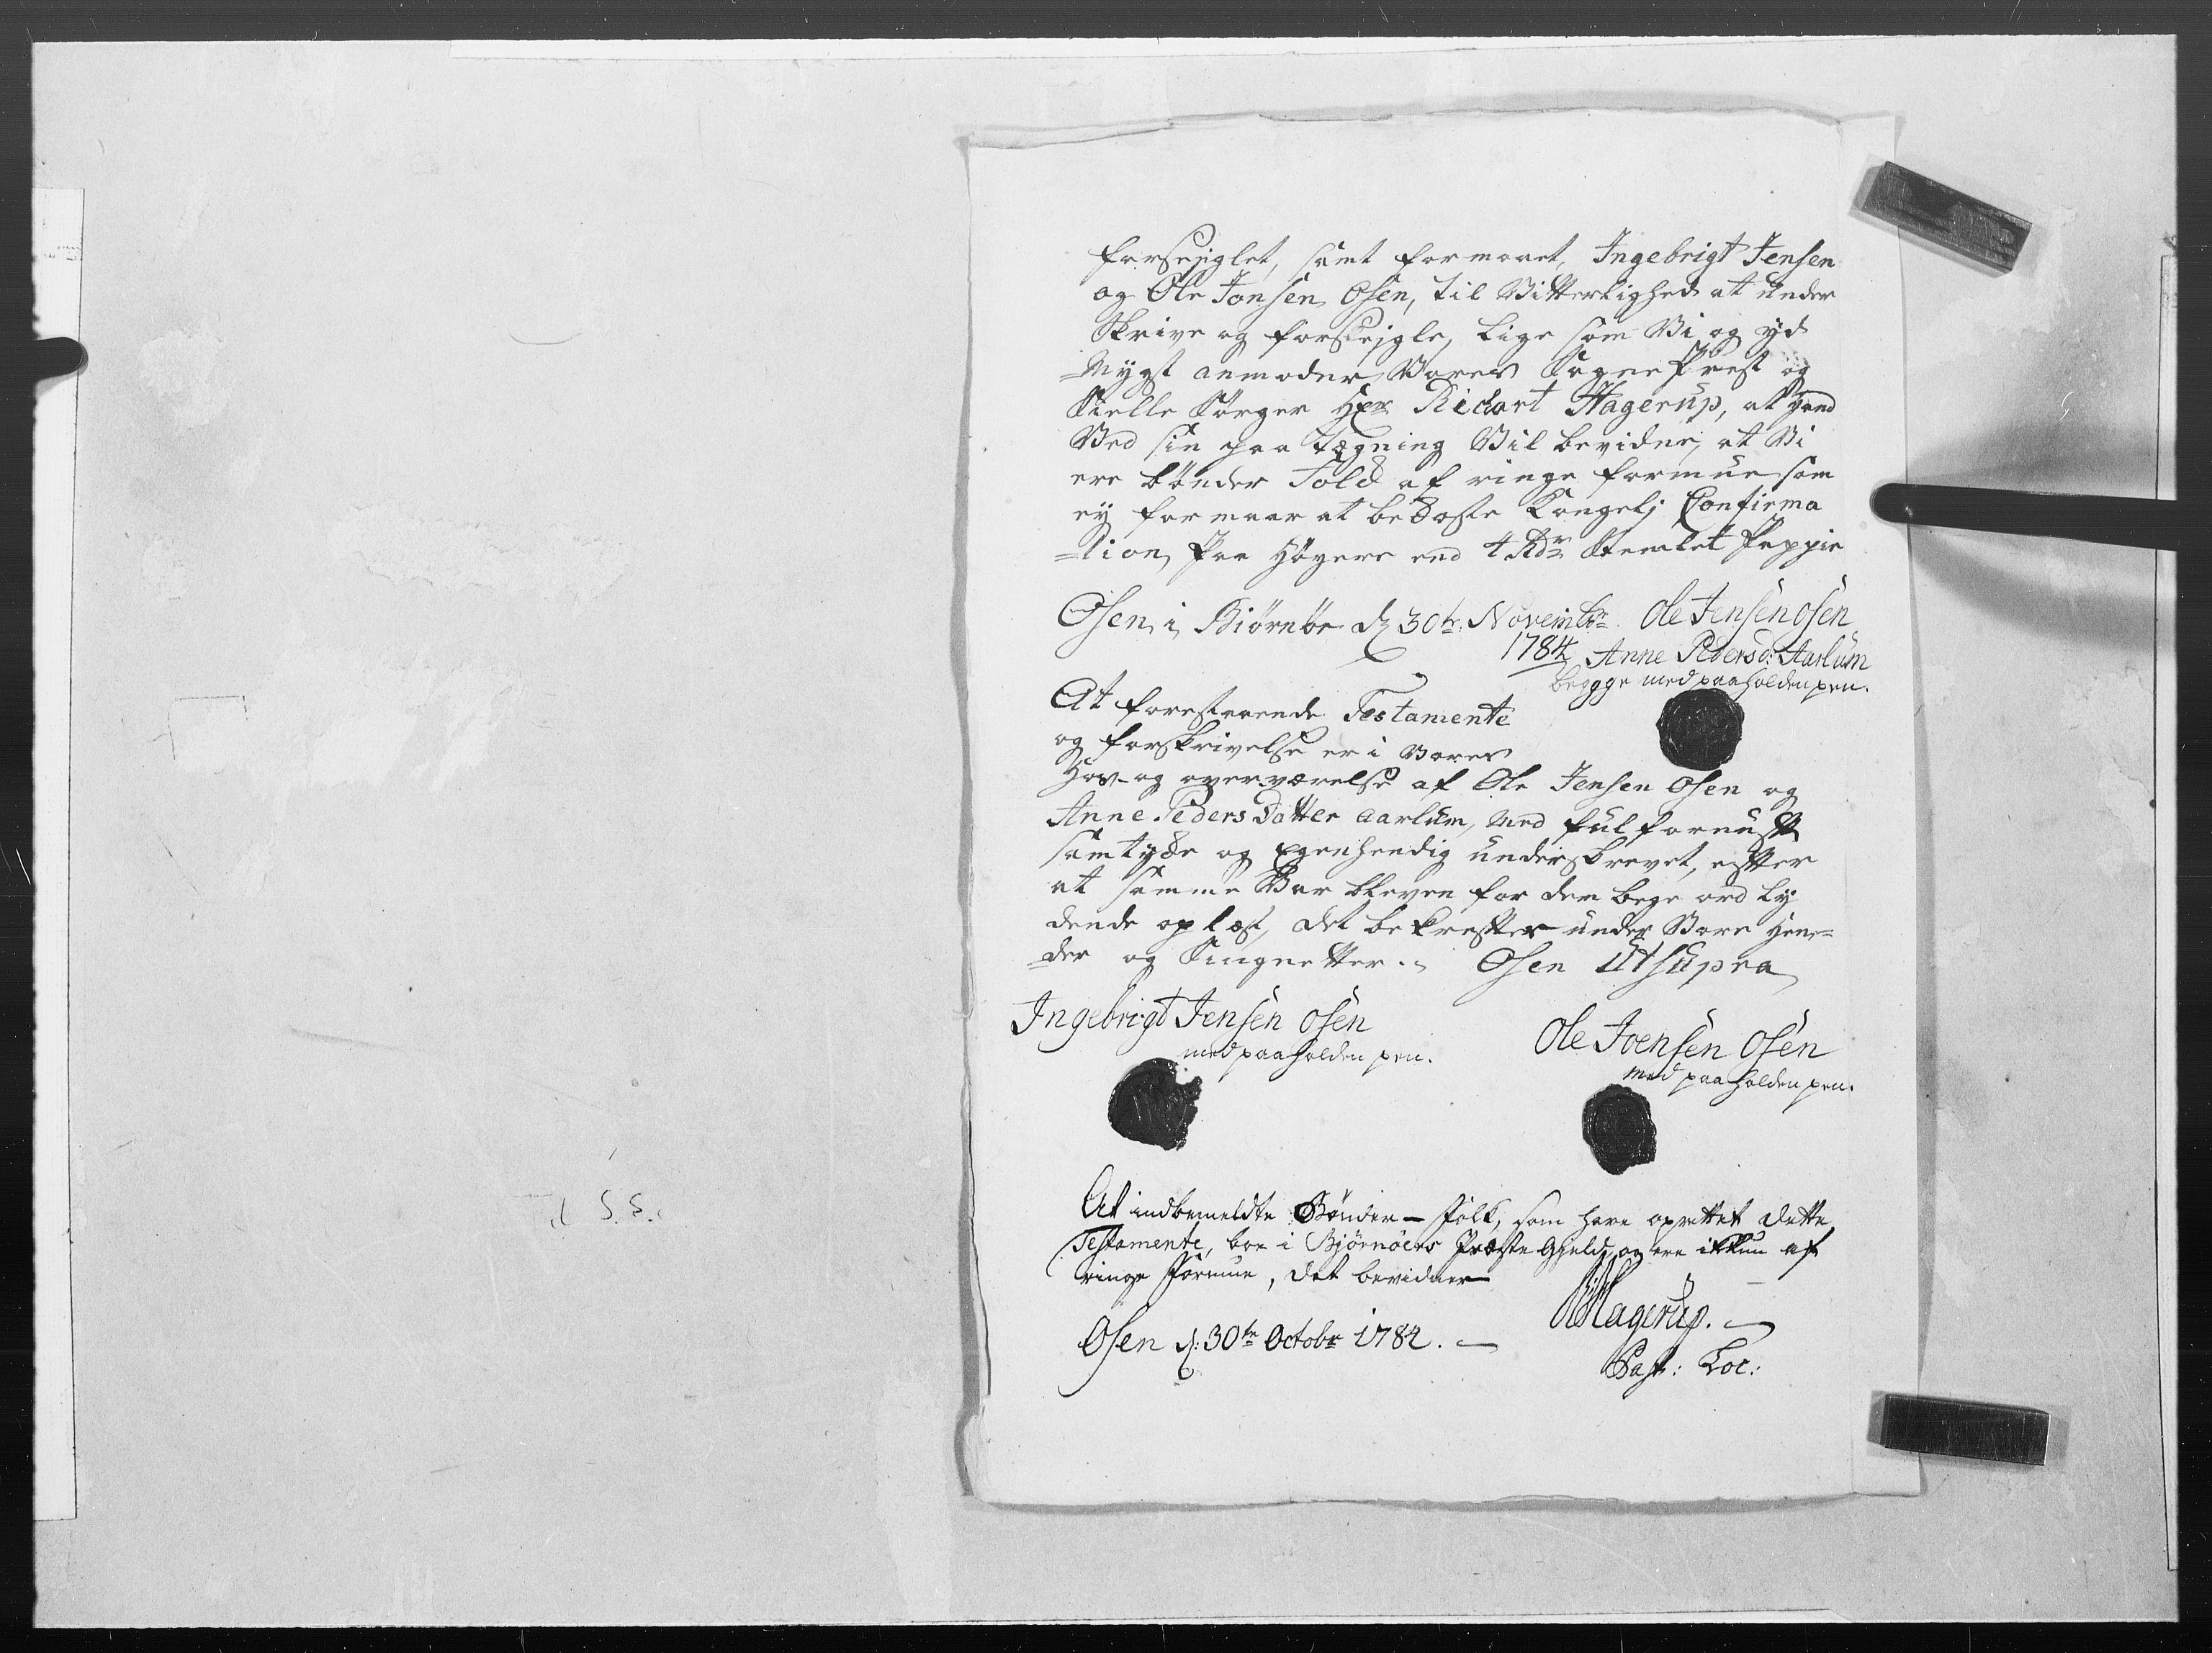 forsejglet, samt formaaet, Ingebrigt Jensen
og Ole Jonsen Osen, til Vitterlighed at under
Skrive og forsejgle, lige som Vi og yd
=Mygst anmoder Vores SognePrest og
Sielle Sørger Hr. Richart Hagerup, at hand
Ved sin paa tegning Vil bevidne, at Vi
ere bønder Folck af ringe formue som
ey formaar at bekoste Kongel: Confirma
=tion, Paa Høyere end 4 Rdr Stemlet Pappir
Osen i Biørnøe d 30te Novembr. Ole Jensen Osen
1784 Anne Pedersd: Aarlum
begge med paaholden pen.
At forestaaende Testamente
og forskrivelse er i Vores
Hos- og overværelse af Ole Jensen Osen og
Anne PedersDatter Aarlum, med ful fornuft
samtykke og Egenhendig underskrevet, efter
at samme Var bleven for dem bege ord ly
dende oplæst, det bekrefter under Vore hen=
=der og Singnetter. Osen Ut supra
Ingebrigt Jensen Osen
med paaholden pen.
Ole Joensen Osen
med paaholden pen.
At indbemeldte Bønder-Folk, som have oprettet dette
Testamente, boe i Bjørnøers Præste Gjeld, og ere ikkun af
ringe Formue, det bevidner
Hagerup.
Osen d: 30te Octobr 1784.
Past: Loc: